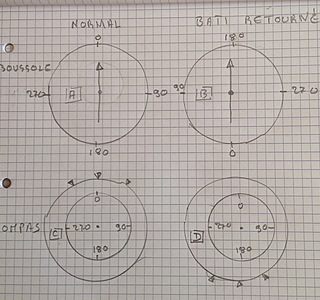 NORMAL BATI RETOURNÉ
0 180
BOUSSOLE
270 A 90 90 B 270
180 0
0 0
OMPAS 270 C 90 270 D 90
180 180